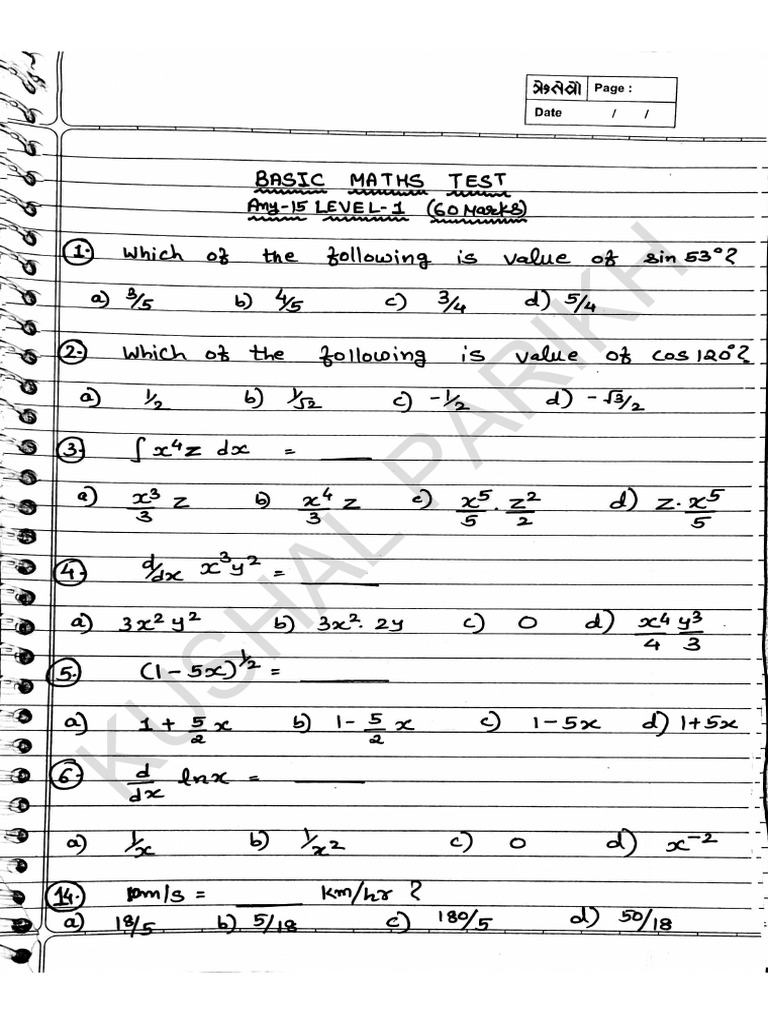 ત્રેતેવો Page :
Date / /
BASIC MATHS TEST
Any-15 LEVEL-1 (60 Marks)
1. Which of the following is value of sin 53°?
a) 3/5 b) 4/5 c) 3/4 d) 5/4
2. Which of the following is value of cos 120°?
a) 1/2 b) 1/√2 c) -1/2 d) -√3/2
3. ∫x⁴z dx = ___
a) x³/3 z b) x⁴/3 z c) x⁵/5 . z²/2 d) z. x⁵/5
4. d/dx x³y² = ___
a) 3x²y² b) 3x². 2y c) 0 d) x⁴/4 y³/3
5. (1-5x)^1/2 = ___
a) 1 + 5/2 x b) 1- 5/2 x c) 1-5x d) 1+5x
6. d/dx lnx = ___
a) 1/x b) 1/x² c) 0 d) x⁻²
14. 10m/s = ___ km/hr ?
a) 18/5 b) 5/18 c) 180/5 d) 50/18
KUSHAL PARIKH